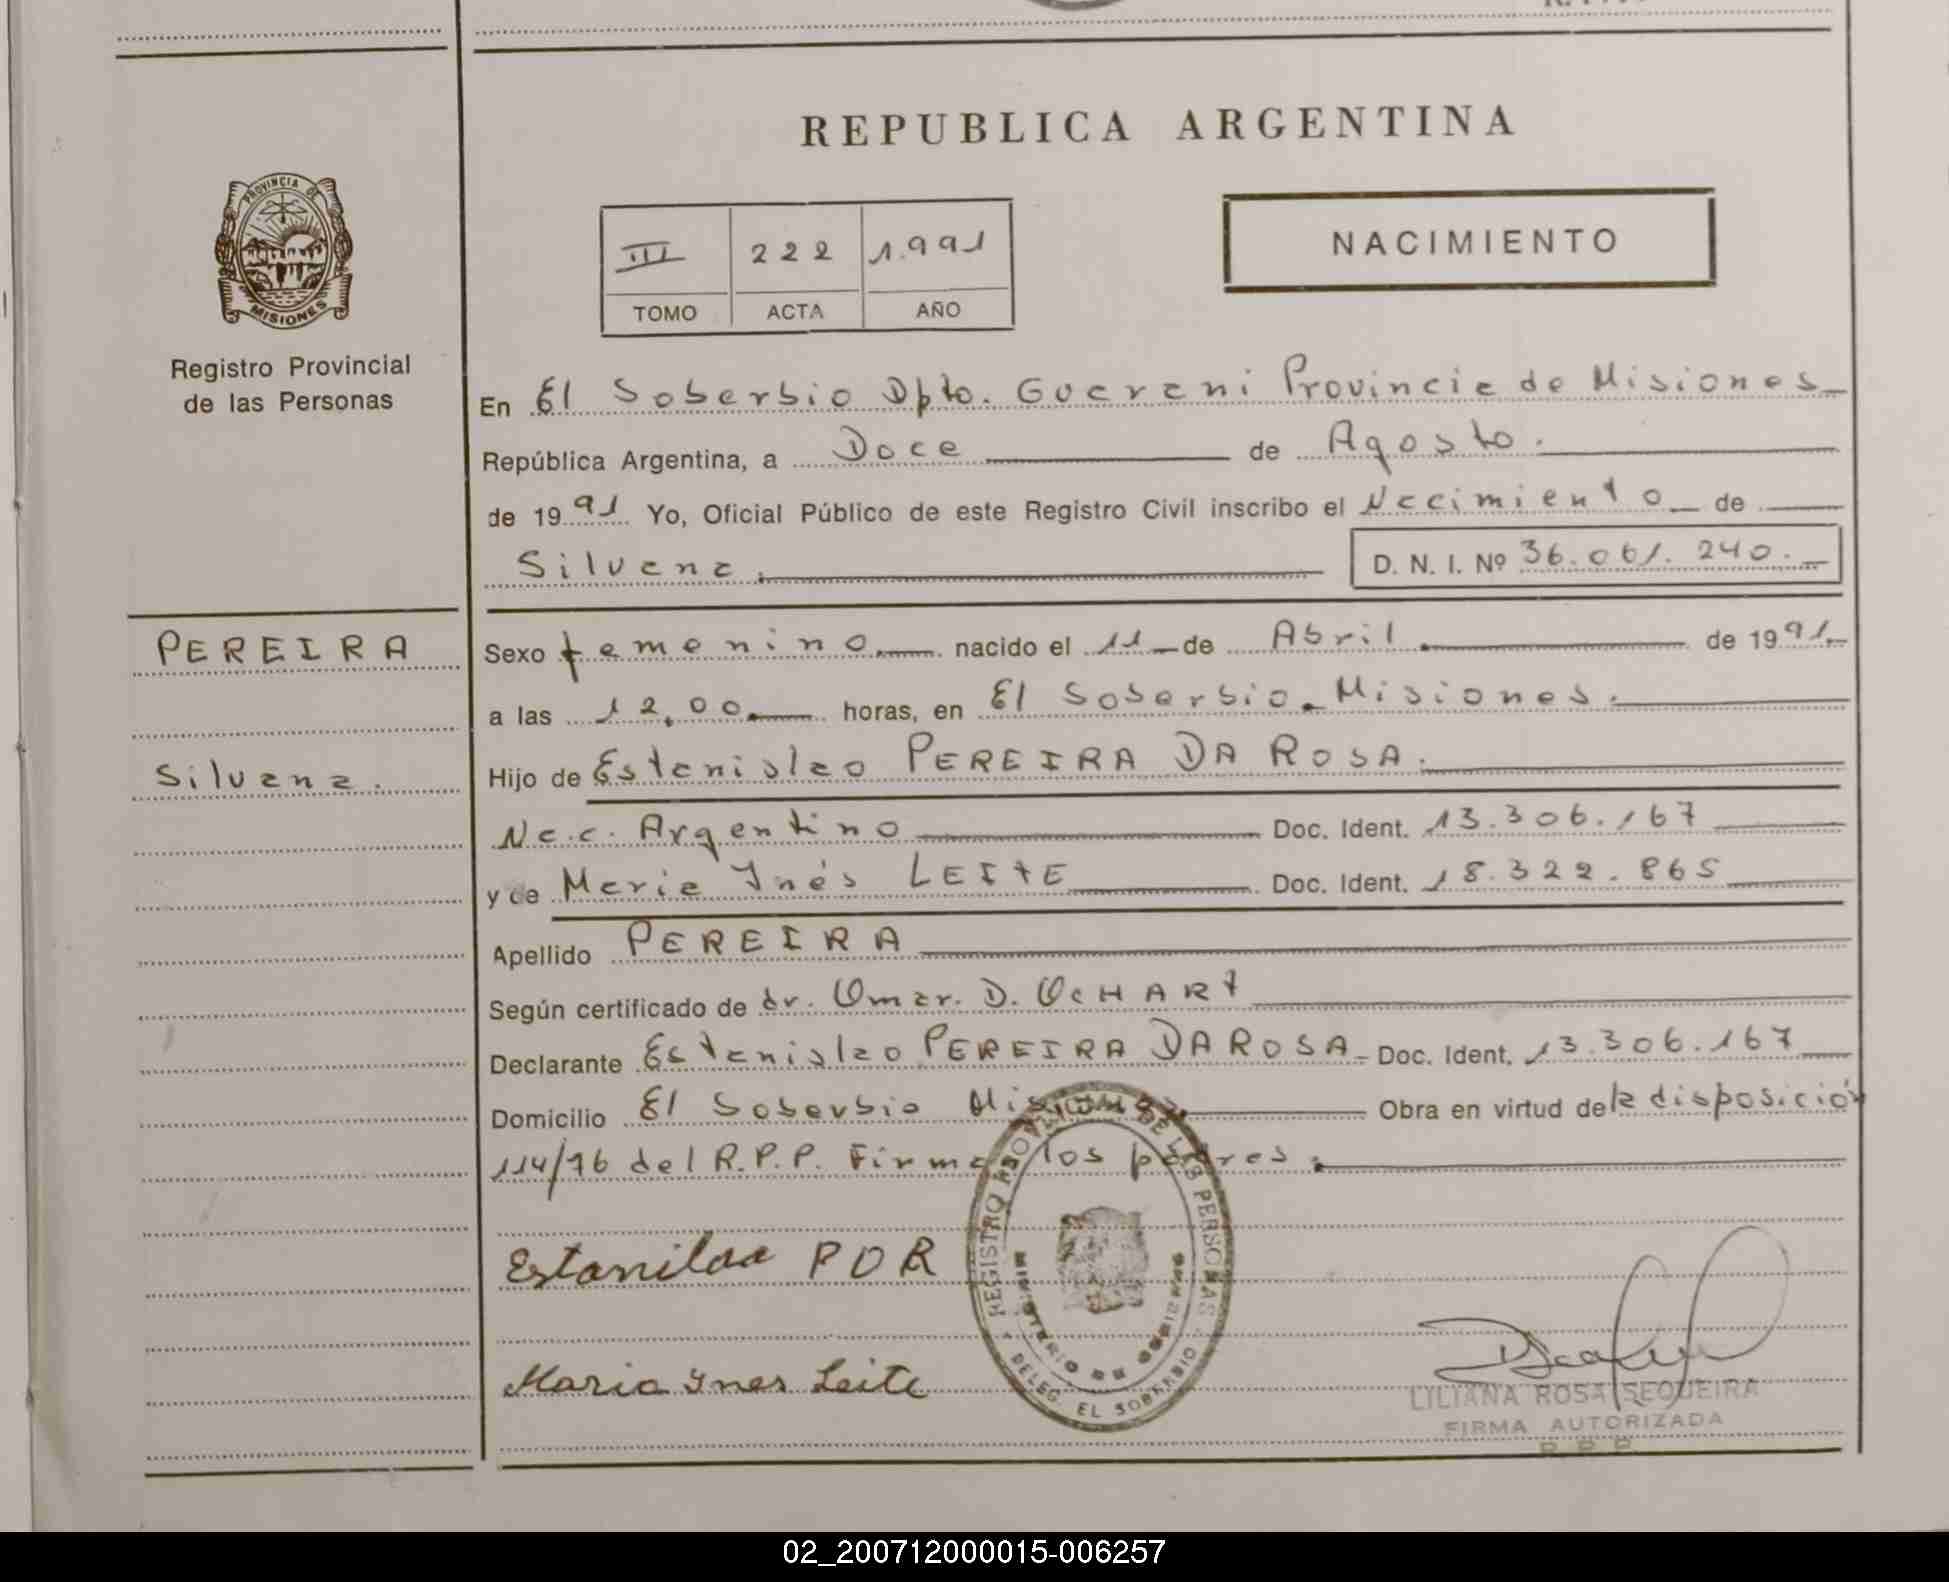 PROVINCIA DE
MISIONES
Registro Provincial
de las Personas
PEREIRA
Silvana.
REPUBLICA ARGENTINA
III 222 1.991
TOMO ACTA AÑO
NACIMIENTO
En El Soberbio Dpto. Guarani Provincia de Misiones
República Argentina, a Doce de Agosto.
de 1991 Yo, Oficial Público de este Registro Civil inscribo el Nacimiento de
Silvana. D. N. I. Nº 36.061.240.
Sexo femenino nacido el 11 de Abril de 1991
a las 12,00 horas, en El Soberbio. Misiones.
Hijo de Estanislao PEREIRA DA ROSA.
Nac. Argentino Doc. Ident. 13.306.167
y de Maria Inés LEITE Doc. Ident. 18.322.865
Apellido PEREIRA
Según certificado de dr. Omar. D. OcHART
Declarante Estanislao PEREIRA DA ROSA Doc. Ident. 13.306.167
Domicilio El Soberbio Misiones Obra en virtud de la disposición
114/76 del R.P.P. Firman los padres.
Estanilaa P D R
Maria Ines Leite
REGISTRO PROVINCIAL DE LAS PERSONAS
MINISTERIO DE GOBIERNO
DELEG. EL SOBERBIO
LILIANA ROSA SEQUEIRA
FIRMA AUTORIZADA
R. P. P.
02_200712000015-006257